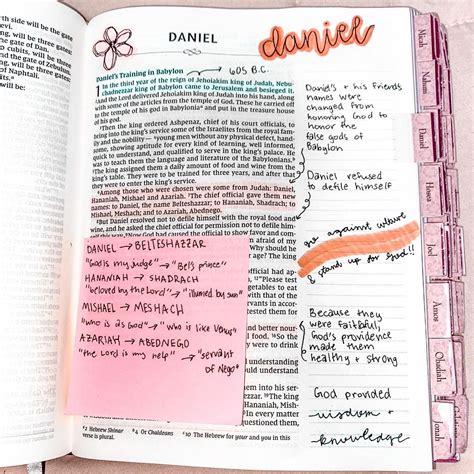 th side will be the
three gates:
gate of Dan.
cubits, will be
three gates:
of Naphtali.
ill be:
DANIEL
daniel
Daniel's Training in Babylon
605 B.C.
1 In the third year of the reign of Jehoiakim king of Judah, Nebu-
chadnezzar king of Babylon came to Jerusalem and besieged it.
And the Lord delivered Jehoiakim king of Judah into his hand, along
with some of the articles from the temple of God. These he carried off
to the temple of his god in Babylonia and put in the treasure house
of his god.
Then the king ordered Ashpenaz, chief of his court officials, to
bring into the king's service some of the Israelites from the royal fam-
ily and the nobility — young men without any physical defect, hand-
some, showing aptitude for every kind of learning, well informed,
quick to understand, and qualified to serve in the king's palace. He
was to teach them the language and literature of the Babylonians.
The king assigned them a daily amount of food and wine from the
king's table. They were to be trained for three years, and after that
they were to enter the king's service.
Among those who were chosen were some from Judah: Daniel,
Hananiah, Mishael and Azariah. The chief official gave them new
names: to Daniel, the name Belteshazzar; to Hananiah, Shadrach; to
Mishael, Meshach; and to Azariah, Abednego.
But Daniel resolved not to defile himself with the royal food and
wine, and he asked the chief official for permission not to defile him-
self this way. Now God had caused the official to show favor and com-
DANIEL → BELTESHAZZAR
"God is my judge" → "Bel's prince"
HANANIAH → SHADRACH
"beloved by the Lord" → "illumed by sun"
MISHAEL → MESHACH
"who is as God" → "who is like Venus"
AZARIAH → ABEDNEGO
"the Lord is my help" → "servant
of Nego"
Daniel's + his friends
names were
changed from
honoring God to
honor the
false gods of
Babylon
Daniel refused
to defile himself
go against culture
& stand up for God!!
Because they
were faithful,
God's providence
made them
healthy + strong
God provided
wisdom +
knowledge
2 Hebrew Shinar
4 Or Chaldeans
10 The Hebrew for your and you in this
verse is plural.
Micah
Nahum
Daniel
Hosea
Joel
Amos
Obadiah
Jonah